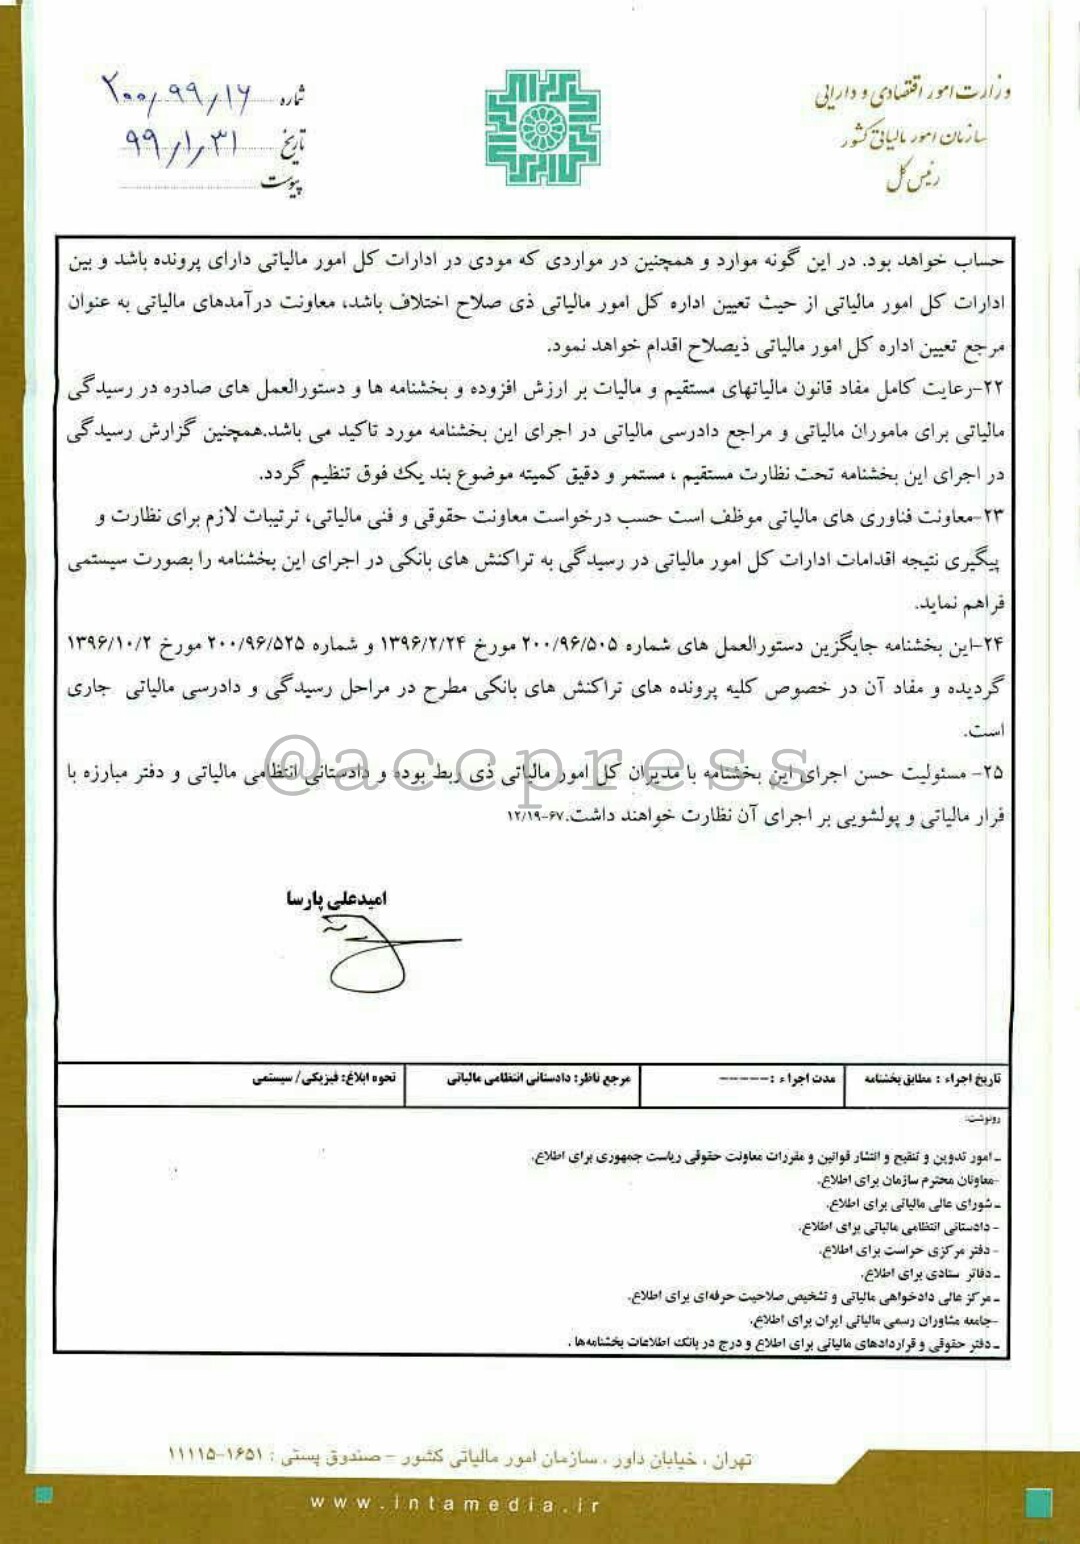 وزارت امور اقتصادی و دارایی
سازمان امور مالیاتی کشور
رئیس کل
شماره ۲۰۰/۹۹/۱۶
تاریخ ۹۹/۱/۳۱
پیوست
حساب خواهد بود. در این گونه موارد و همچنین در مواردی که مودی در ادارات کل امور مالیاتی دارای پرونده باشد و بین
ادارات کل امور مالیاتی از حیث تعیین اداره کل امور مالیاتی ذی صلاح اختلاف باشد، معاونت درآمدهای مالیاتی به عنوان
مرجع تعیین اداره کل امور مالیاتی ذیصلاح اقدام خواهد نمود.
۲۲-رعایت کامل مفاد قانون مالیاتهای مستقیم و مالیات بر ارزش افزوده و بخشنامه ها و دستورالعمل های صادره در رسیدگی
مالیاتی برای ماموران مالیاتی و مراجع دادرسی مالیاتی در اجرای این بخشنامه مورد تاکید می باشد.همچنین گزارش رسیدگی
در اجرای این بخشنامه تحت نظارت مستقیم ، مستمر و دقیق کمیته موضوع بند یک فوق تنظیم گردد.
۲۳-معاونت فناوری های مالیاتی موظف است حسب درخواست معاونت حقوقی و فنی مالیاتی، ترتیبات لازم برای نظارت و
پیگیری نتیجه اقدامات ادارات کل امور مالیاتی در رسیدگی به تراکنش های بانکی در اجرای این بخشنامه را بصورت سیستمی
فراهم نماید.
۲۴-این بخشنامه جایگزین دستورالعمل های شماره ۲۰۰/۹۶/۵۰۵ مورخ ۱۳۹۶/۲/۲۴ و شماره ۲۰۰/۹۶/۵۲۵ مورخ ۱۳۹۶/۱۰/۲
گردیده و مفاد آن در خصوص کلیه پرونده های تراکنش های بانکی مطرح در مراحل رسیدگی و دادرسی مالیاتی جاری
است.
@accpress
۲۵- مسئولیت حسن اجرای این بخشنامه با مدیران کل امور مالیاتی ذی ربط بوده و دادستانی انتظامی مالیاتی و دفتر مبارزه با
فرار مالیاتی و پولشویی بر اجرای آن نظارت خواهند داشت.۶۷-۱۲/۱۹
امیدعلی پارسا
تاریخ اجراء : مطابق بخشنامه
مدت اجراء : -----
مرجع ناظر: دادستانی انتظامی مالیاتی
نحوه ابلاغ: فیزیکی/ سیستمی
رونوشت:
- امور تدوین و تنقیح و انتشار قوانین و مقررات معاونت حقوقی ریاست جمهوری برای اطلاع.
-معاونان محترم سازمان برای اطلاع.
- شورای عالی مالیاتی برای اطلاع.
- دادستانی انتظامی مالیاتی برای اطلاع.
- دفتر مرکزی حراست برای اطلاع.
- دفاتر ستادی برای اطلاع.
- مرکز عالی دادخواهی مالیاتی و تشخیص صلاحیت حرفه‌ای برای اطلاع.
-جامعه مشاوران رسمی مالیاتی ایران برای اطلاع.
- دفتر حقوقی و قراردادهای مالیاتی برای اطلاع و درج در بانک اطلاعات بخشنامه‌ها .
تهران ، خیابان داور ، سازمان امور مالیاتی کشور - صندوق پستی : ۱۶۵۱-۱۱۱۱۵
www.intamedia.ir